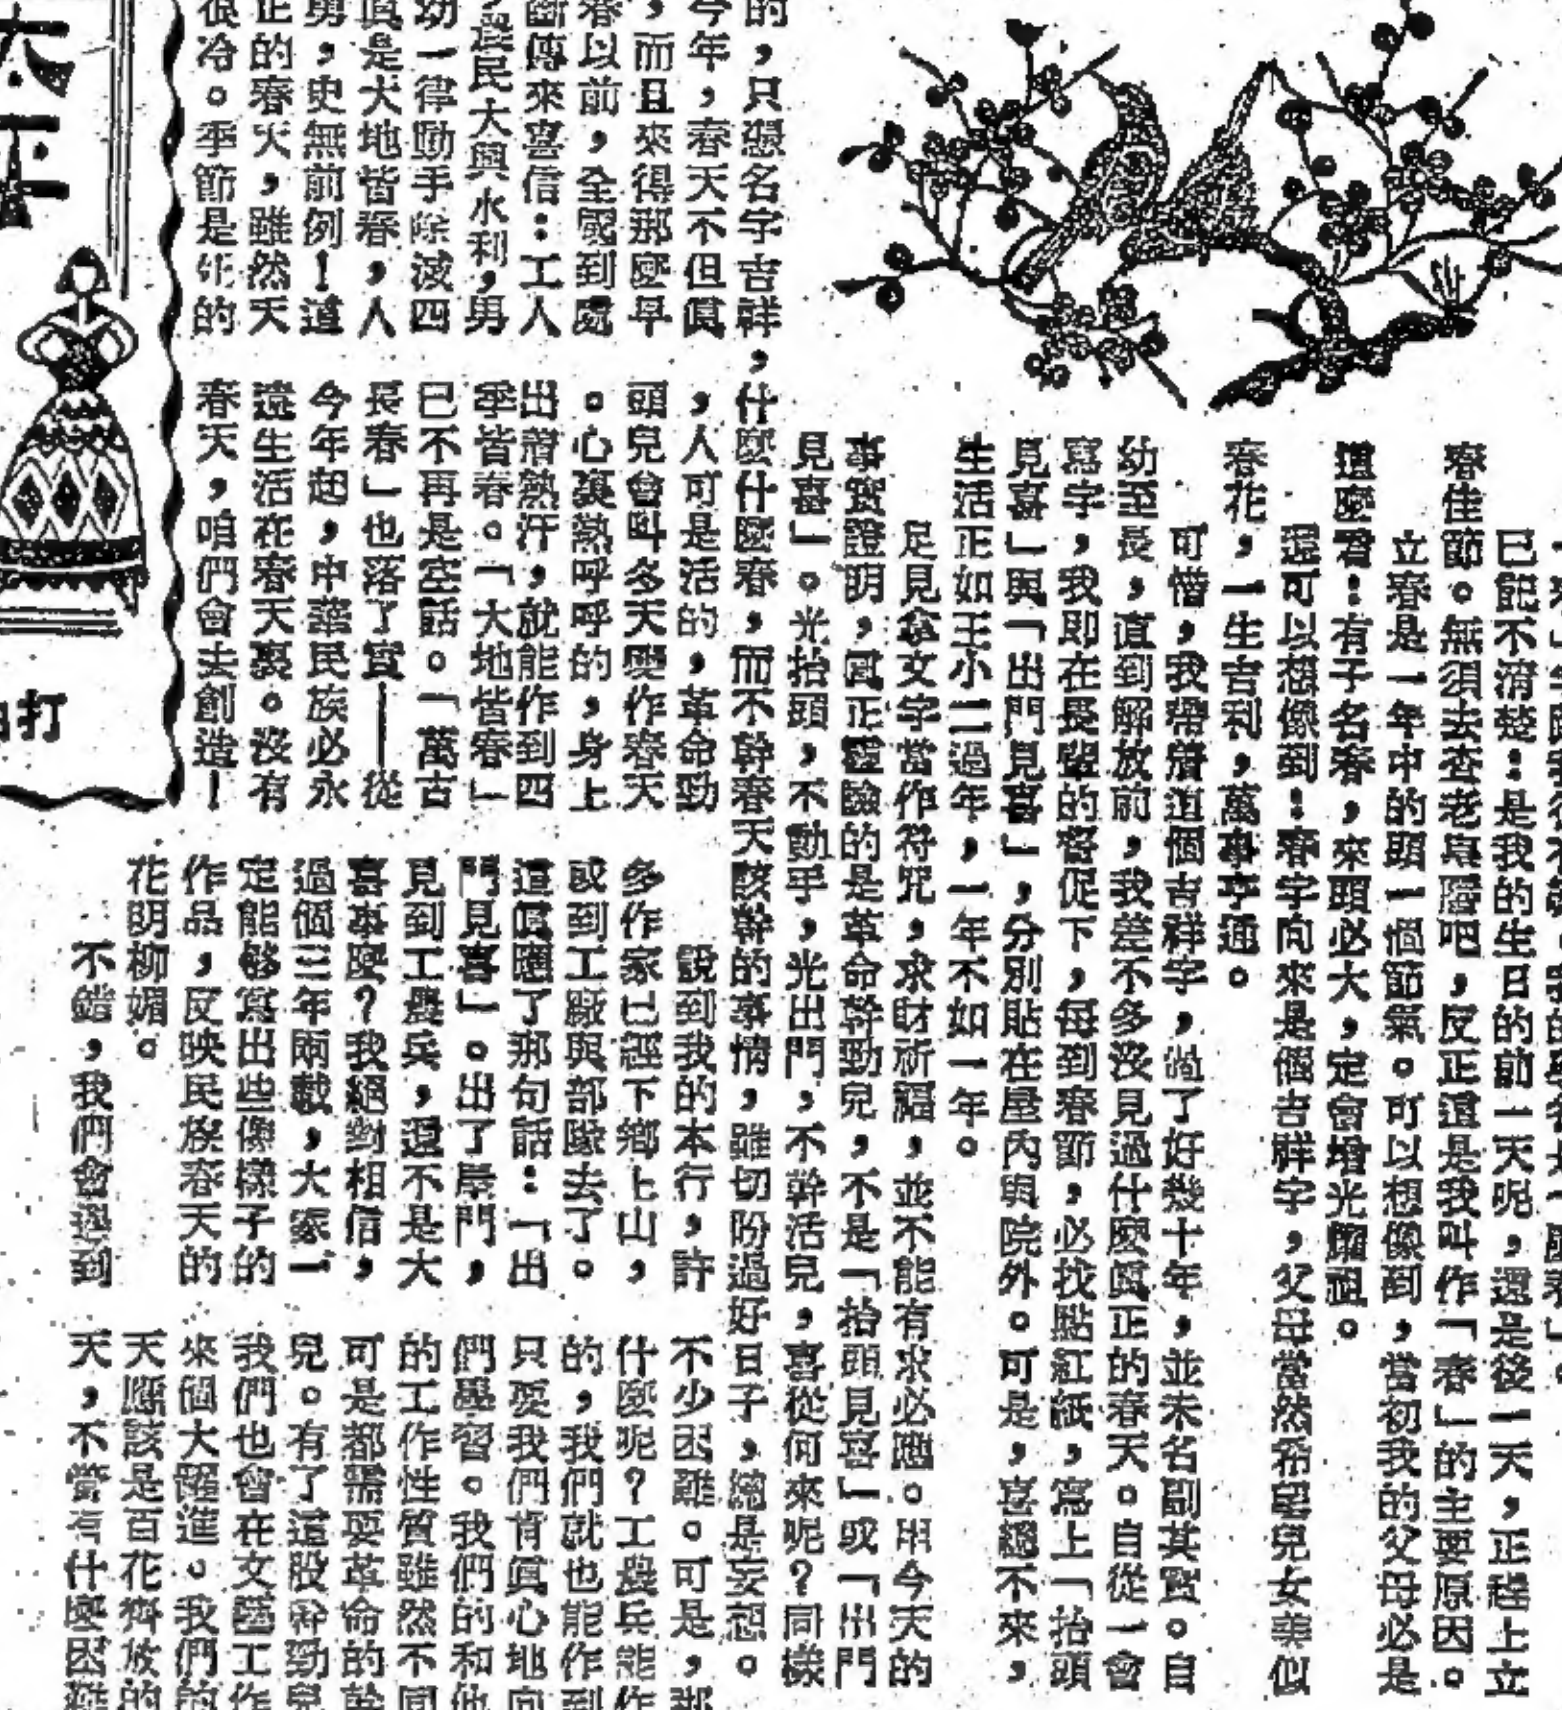 已記不清楚:是我的生日的前一天呢,還是後一天,正趕上立
春佳節。無須去查老皇曆吧,反正這是我叫作「春」的主要原因。
立春是一年中的頭一個節氣。可以想像到,當初我的父母必是
這麼看:有子名春,來頭必大,定會增光耀祖。
還可以想像到:春字向來是個吉祥字,父母當然希望兒女美似
春花,一生吉利,萬事亨通。
可惜,我帶着這個吉祥字,過了好幾十年,並未名副其實。自
幼至長,直到解放前,我差不多沒見過什麼眞正的春天。自從一會
寫字,我即在長輩的督促下,每到春節,必找點紅紙,寫上「抬頭
見喜」與「出門見喜」,分別貼在屋內與院外。可是,喜總不來,
生活正如王小二過年,一年不如一年。
足見拿文字當作符咒,求財祈福,並不能有求必應。用今天的
事實證明,眞正靈驗的是革命幹勁兒,不是「抬頭見喜」或「出門
見喜」。光抬頭,不動手,光出門,不幹活兒,喜從何來呢?同樣
的,只憑名字吉祥,什麼什麼春,而不幹春天該幹的事情,雖切盼過好日子,總是妄想。
今年,春天不但眞
,而且來得那麼早
春以前,全國到處
斷傳來喜信:工人
,農民大興水利,男
幼一律動手除滅四
眞是大地皆春,人
勇,史無前例!這
正的春天,雖然天
很冷。季節是死的
,人可是活的,革命勁
頭兒會叫冬天變作春天
。心裏熱呼呼的,身上
出着熱汗,就能作到四
季皆春。「大地皆春」
已不再是空話。「萬古
長春」也落了實——從
今年起,中華民族必永
遠生活在春天裏。沒有
春天,咱們會去創造!
說到我的本行,許
多作家已經下鄉上山,
或到工廠與部隊去了。
這眞應了那句話:「出
門見喜」。出了屋門,
見到工農兵,還不是大
喜事麼?我絕對相信,
過個三年兩載,大家一
定能夠寫出些像樣子的
作品,反映民族春天的
花明柳媚。
不錯,我們會遇到
不少困難。可是,那
什麼呢?工農兵能作
的,我們就也能作到
只要我們肯眞心地向
們學習。我們的和他
的工作性質雖然不同
可是都需要革命的幹
兒。有了這股幹勁兒
我們也會在文藝工作
來個大躍進。我們的
天應該是百花齊放的
天,不管有什麼困難
太平
打